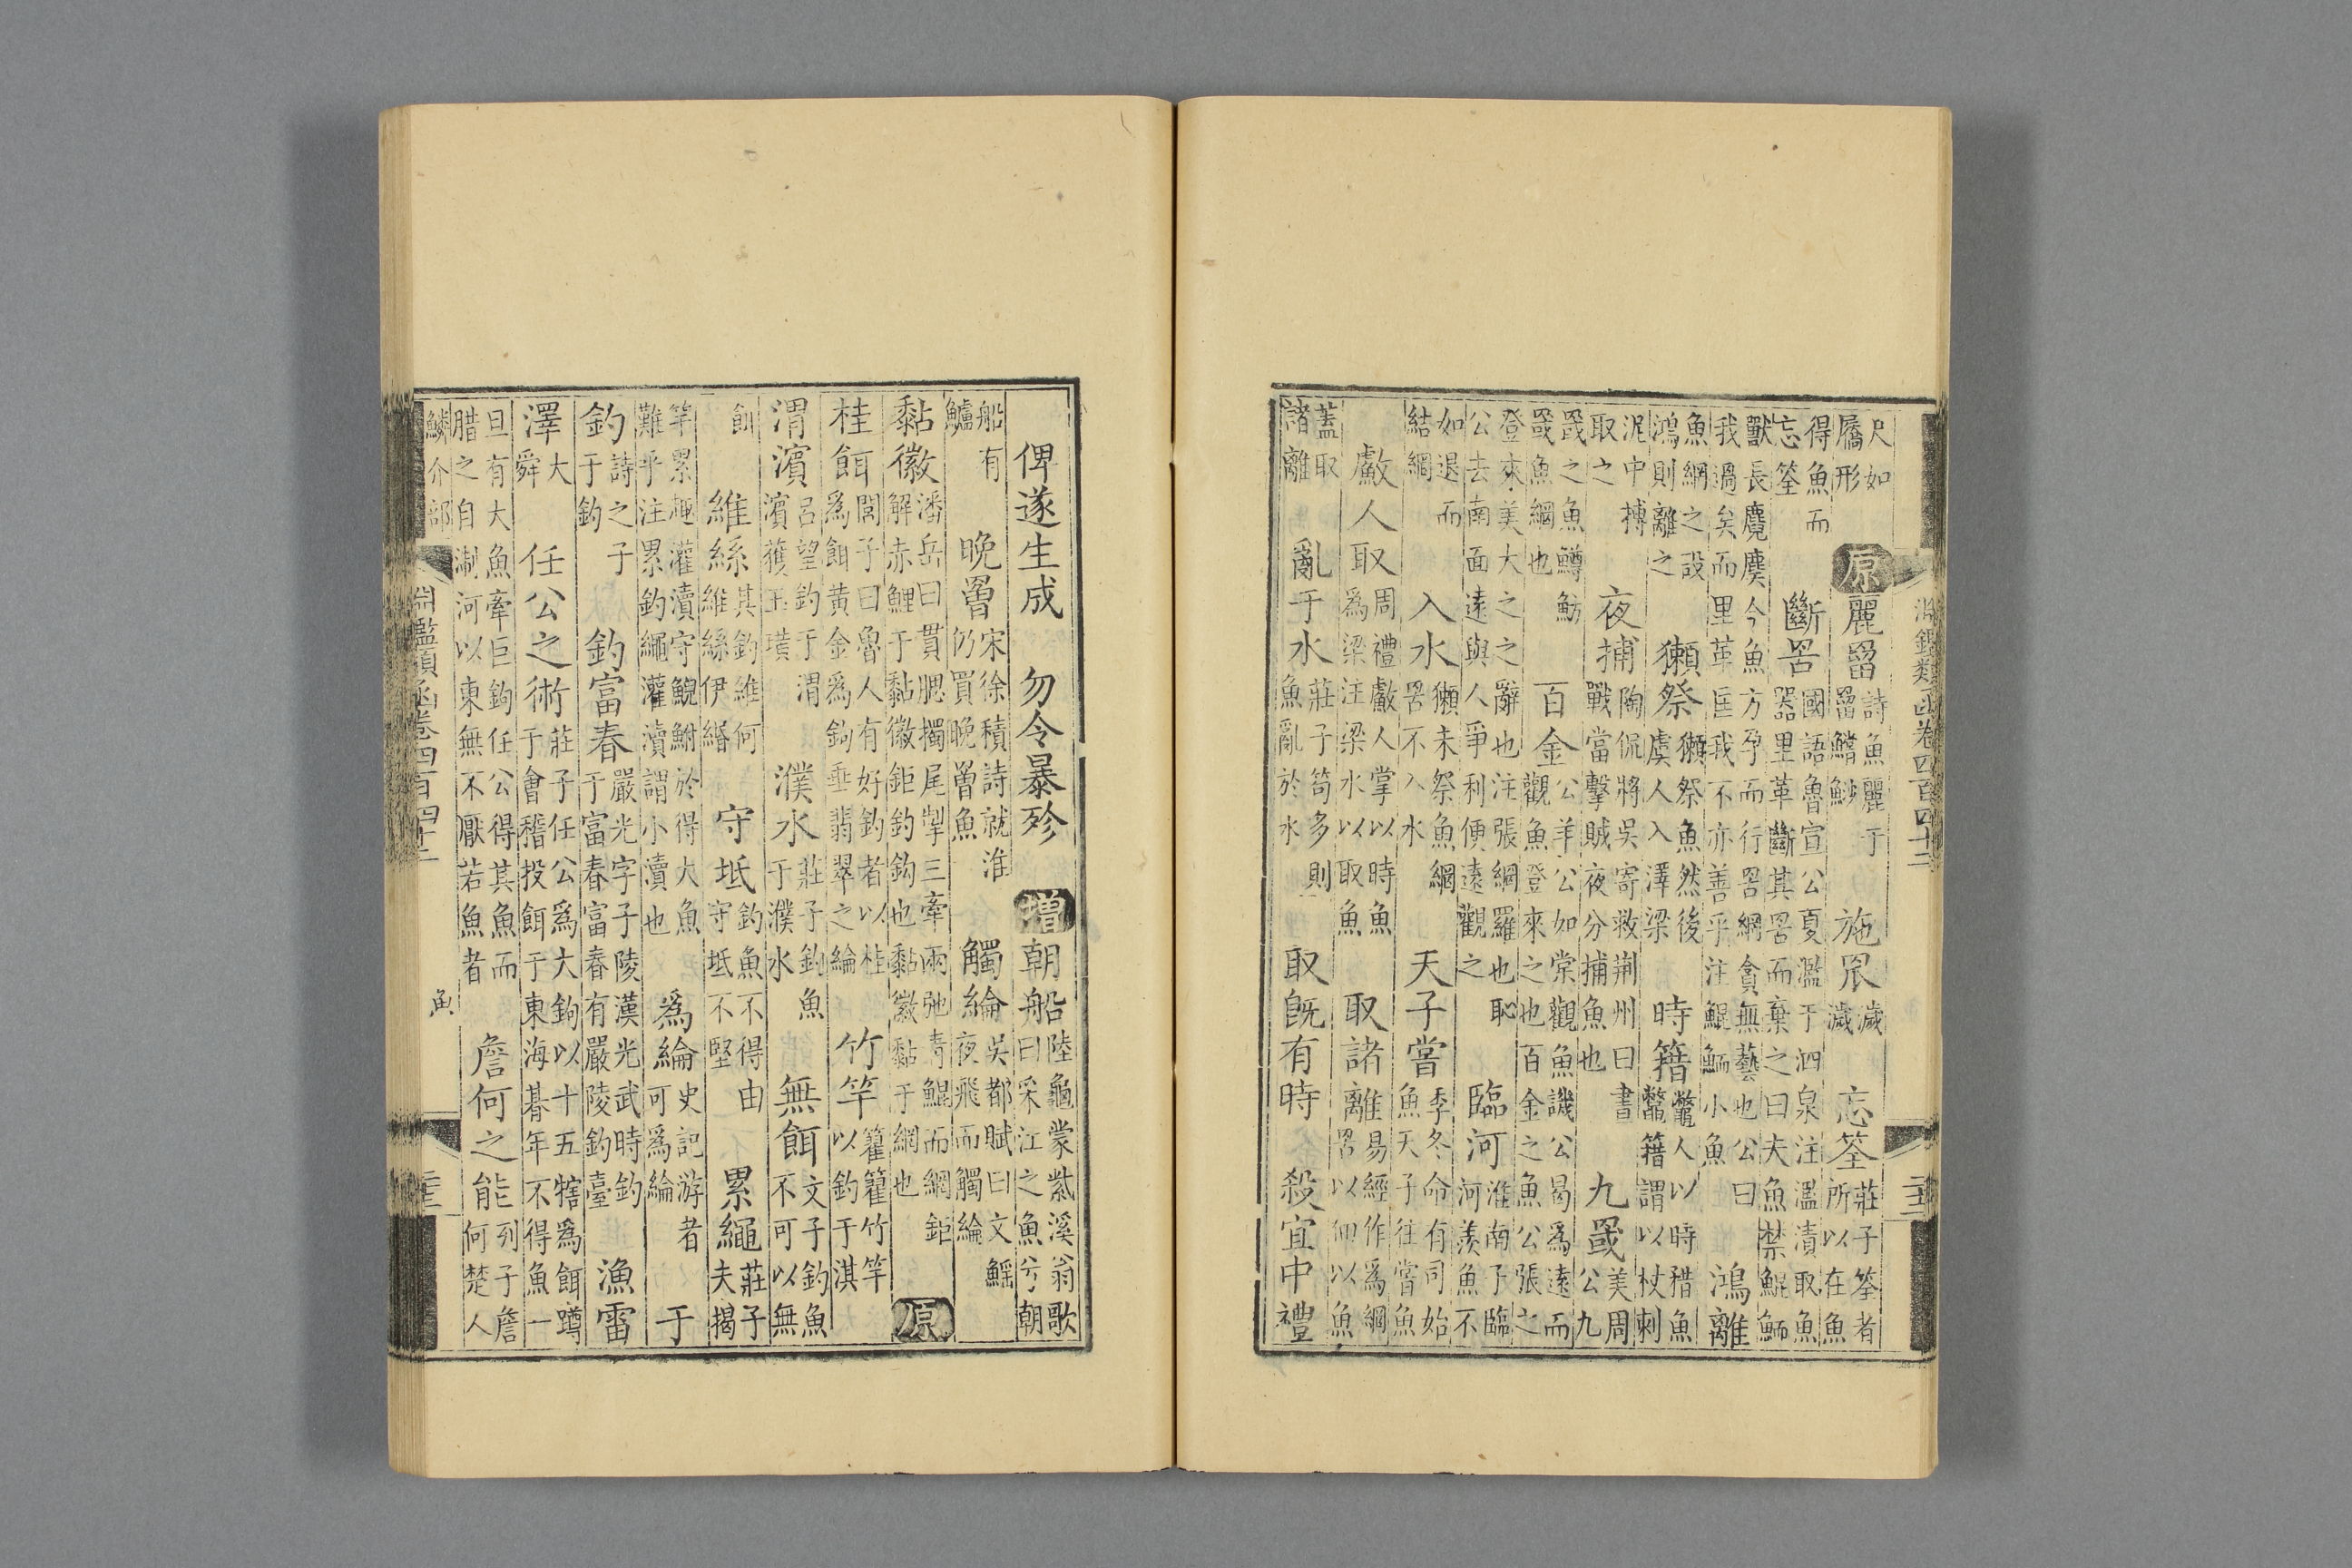 淵鑑類函卷四百四十二
尺如屩形 原 麗罶 詩魚麗于罶鱨鯊 施罛 濊濊 忘筌 莊子筌者所以在魚
得魚而忘筌 斷罟 國語魯宣公夏濫于泗泉注濫漬取魚器里革斷其罟而棄之曰夫魚禁鯤鮞
獸長麑麌今魚方孕而行罟網貪無藝也公曰我過矣而里革匡我不亦善乎注鯤鮞小魚 鴻離
魚網之設鴻則離之 獺祭 獺祭魚然後虞人入澤梁 時籍 鼈人以時矠魚鼈籍謂以杖刺
泥中搏取之 夜捕 陶侃將吳寄救荆州曰書戰當擊賊夜分捕魚也 九罭 美周公九
罭之魚鱒魴罭魚網也 百金 公羊公如棠觀魚譏公曷為遠而觀魚登來之也百金之魚公張之
登來美大之之辭也注張網羅也恥公去南面遠與人爭利便遠觀之 臨河 淮南子臨河羨魚不
如退而結網 入水 獺未祭魚網罟不入水 天子嘗 季冬命有司始魚天子往嘗魚
䱷人取 周禮䱷人掌以時魚為梁注梁水以取魚 取諸離 易經作為網罟以佃以魚
蓋取諸離 亂于水 莊子笱多則魚亂於水 取旣有時 殺宜中禮
俾遂生成 勿令暴殄 增 朝船 陸龜蒙紫溪翁歌曰采江之魚兮朝
船有鱸 晚罾 宋徐積詩就淮仍買晚罾魚 觸綸 吳都賦曰文鰩夜飛而觸綸
黏徽 潘岳曰貫腮擉尾掣三牽兩弛青鯤而網鉅解赤鯉于黏徽鉅鈎鈎也黏徽黏于網也 原
桂餌 闔子曰魯人有好釣者以桂為餌黃金為鈎垂翡翠之綸 竹竿 籊籊竹竿以釣于淇
渭濱 呂望釣于渭濱獲玉璜 濮水 莊子釣魚于濮水 無餌 文子釣魚不可以無
餌 維絲 其釣維何維絲伊緡 守坻 釣魚不得由守坻不堅 累繩 莊子夫揭
竿累趣灌瀆守鯢鮒於得大魚難乎注累釣繩灌瀆謂小瀆也 為綸 史記游者可為綸 于
釣 詩之子于釣 釣富春 嚴光字子陵漢光武時釣于富春富春有嚴陵釣臺 漁雷
澤 大舜 任公之術 莊子任公為大鉤以十五犗為餌蹲于會稽投餌于東海朞年不得魚一
旦有大魚牽巨鈎任公得其魚而腊之自淛河以東無不厭若魚者 詹何之能 列子詹何楚人
鱗介部 淵鑑類函卷四百四十二 魚